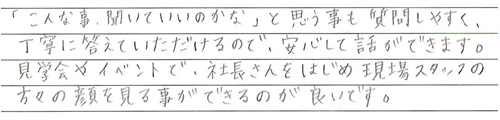 「こんな事、聞いていいのかな」と思う事も質問しやすく、
丁寧に答えていただけるので、安心して話ができます。
見学会やイベントで、社長さんをはじめ現場スタッフの
方々の顔を見る事ができるのが良いです。